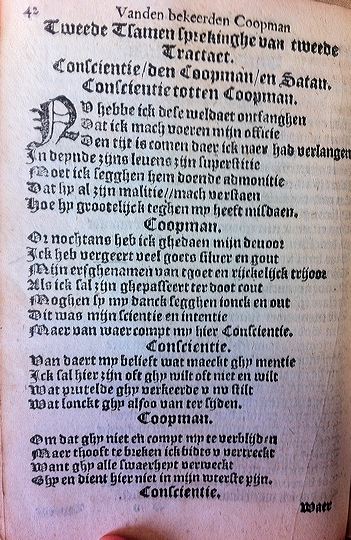 42
Vanden bekeerden Coopman
Tweede Tsamen sprekinghe van tweede
Tractaet.
Conscientie/den Coopman/en Satan.
Conscientie totten Coopman.
NV hebbe ick dese weldaet ontfanghen
Dat ick mach voeren mijn officie
Den tijt is comen daer ick naer had verlangen
In deynde zijns levens zijn superstitie
Moet ick segghen hem doende admonitie
Dat hy al zijn malitie//mach verstaen
Hoe hy grootelijck teghen my heeft misdaen.
Coopman.
Or nochtans heb ick ghedaen mijn devoor
Ick heb vergeert veel goets silver en gout
Mijn erfghenamen van tgoet en rijckelijck trijoor
Als ick sal zijn ghepasseert ter doot cout
Moghen sy my danck segghen ionck en out
Dit was mijn scientie en intentie
Maer van waer compt my hier Conscientie.
Conscientie.
Van daert my belieft wat maeckt ghy mentie
Ick sal hier zijn oft ghy wilt oft niet en wilt
Wat prutelde ghy verkeerde v nv stilt
Wat lonckt ghy alsoo van ter syden.
Coopman.
Om dat ghy niet en compt my te verblijden
Maer thooft te breken ick bidts v vertreckt
Want ghy alle swaerheyt verweckt
Ghy en dient hier niet in mijn wterste pijn.
Conscientie.
Waer